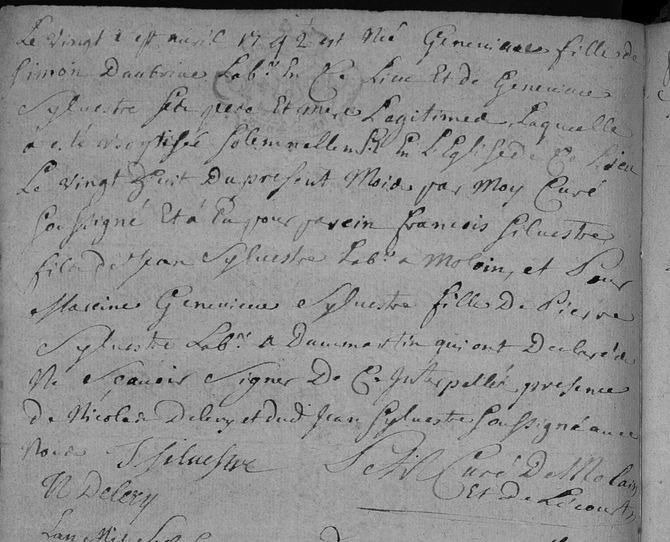 Le vingt sept avril 1792 est née Genevieve fille de
Simon Daubrive Labr En Ce Lieu Et de Genevieve
Sylvestre Ses pere Et mere Legitimes, Laquelle
à été Baptisée solemnellemt En L'Eglise de Ce Lieu
Le vingt huit Du present Mois par Moy Curé
Soussigné Et à Eu pour parein francois Silvestre
fils de Jean Sylvestre Labr a Molain, et Pour
Mareine Genevieve Sylvestre fille De Pierre
Sylvestre Labr a Dammartin qui ont Declarés
Ne Sçavoir Signer De Ce Interpellés presence
de Nicolas Delecy et dud Jean Sylvestre Soussigné avec
Nous J Silvestre Petit Curé De Molain
N Delecy Et de Lécourt